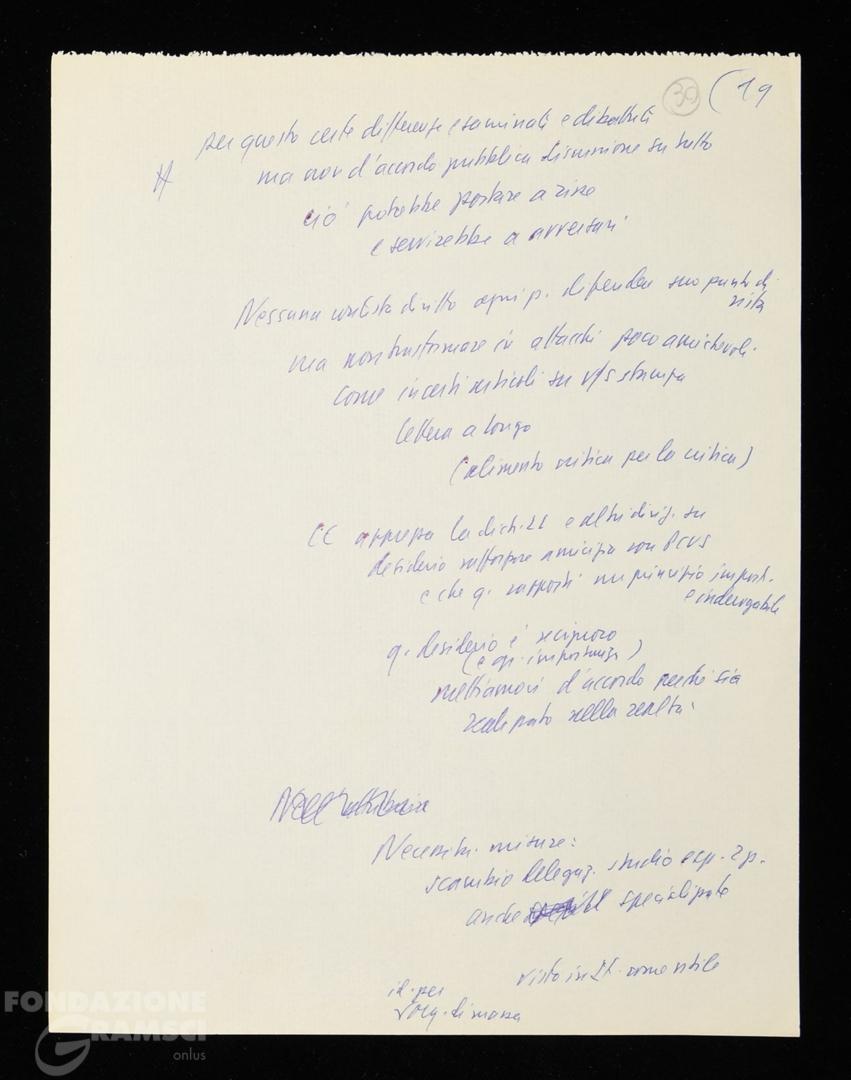 39 (19
per queste certe differenze esaminati e dibattuti
ma non d'accordo pubblica discussione su tutto
ciò potrebbe portare a
e servirebbe a avversari
Nessuno contesta diritto ogni p. difendere suo punto di
vista
ma non trasformare in attacchi poco amichevoli.
come in certi articoli su vs stampa
lettera a Longo
(alimento critica per la critica)
CC apprezza la dich. LL e altri dirig. su
desiderio rafforzare amicizia con PCUS
e che q. rapporti un principio import.
e inderogabile
q. desiderio è reciproco
(e gr. importanza)
mettiamoci d'accordo perché sia
realizzato nella realtà.
Necessità misure:
scambio delegaz. studio esp. 2 p.
anche specializzate
visto in come utile
id. per
org. di massa
FONDAZIONE
GRAMSCI
onlus